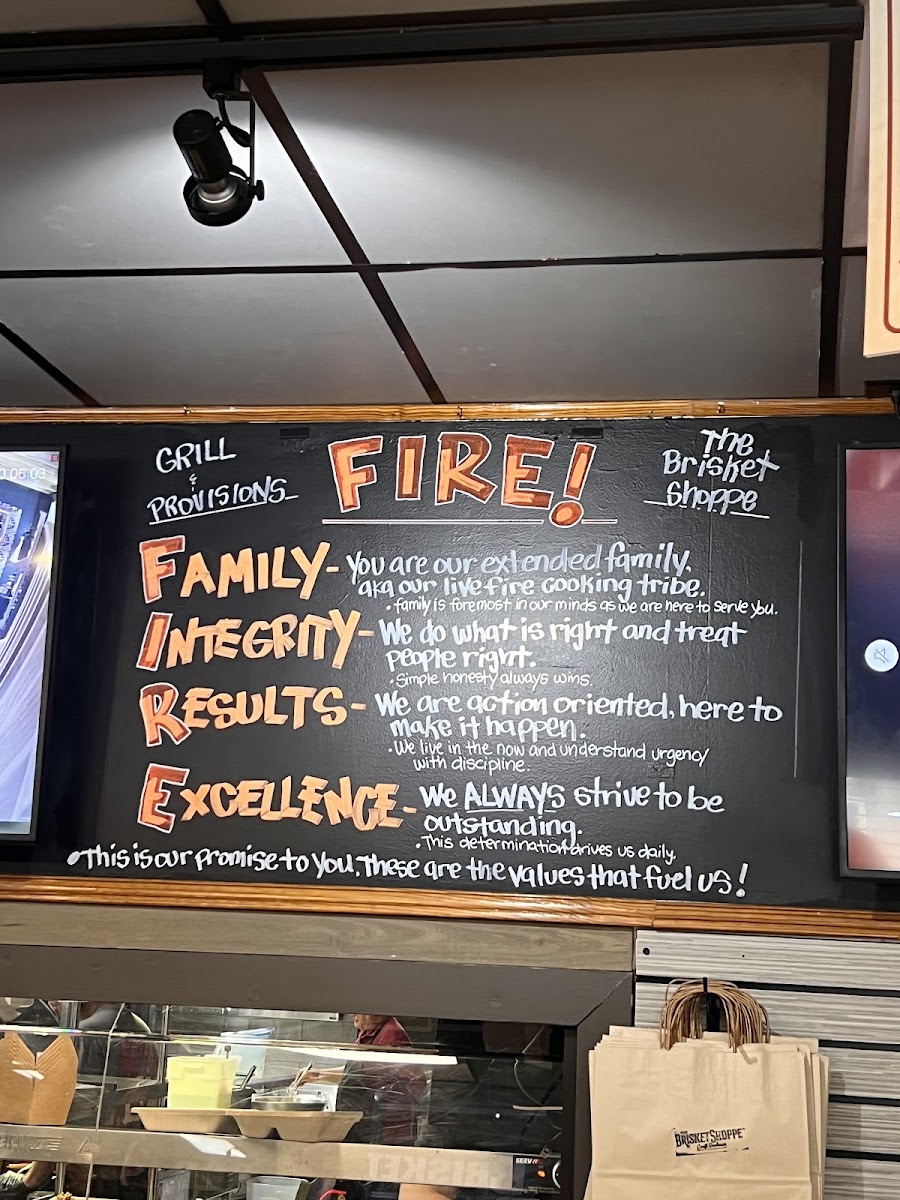 GRILL
&
PROVISIONS
FIRE!
The
Brisket
Shoppe
FAMILY - You are our extended family,
aka our live fire cooking tribe.
• family is foremost in our minds as we are here to serve you.
INTEGRITY - We do what is right and treat
people right.
• Simple honesty always wins.
RESULTS - We are action oriented, here to
make it happen.
• We live in the now and understand urgency
with discipline.
EXCELLENCE - We ALWAYS strive to be
outstanding.
• This determination drives us daily.
• This is our promise to you. These are the values that fuel us!
BRISKET SHOPPE